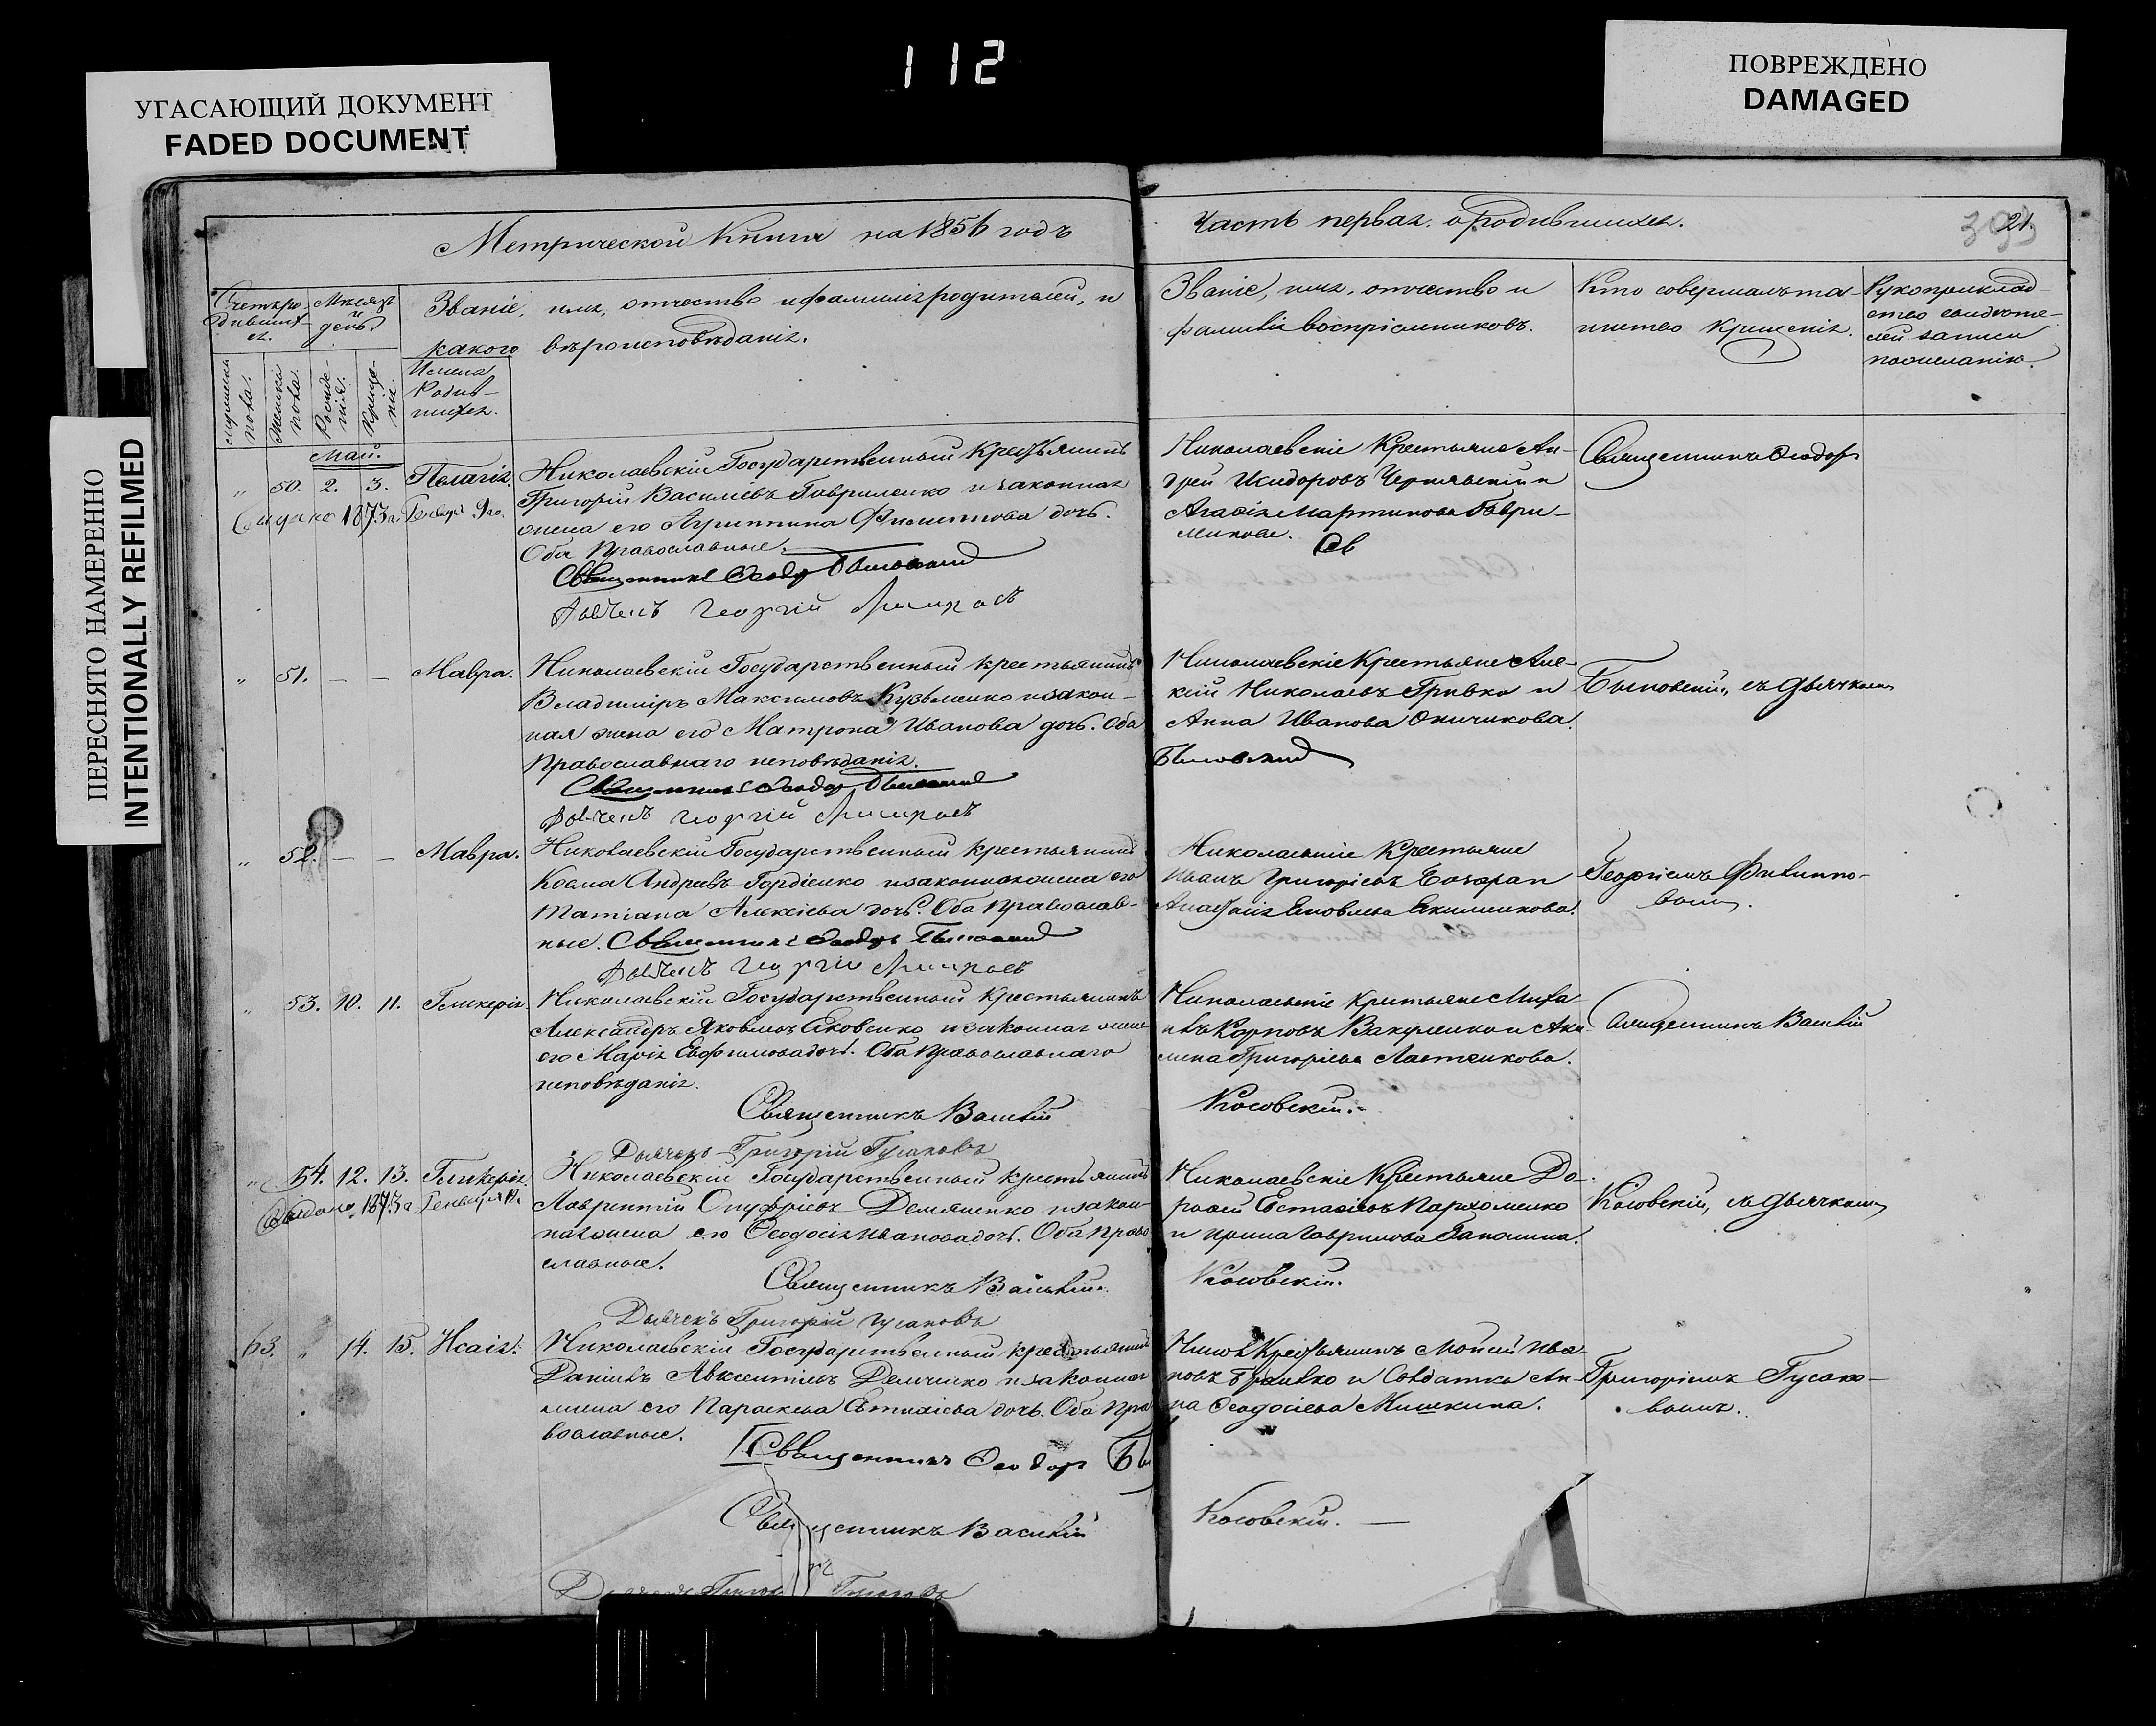 112
УГАСАЮЩИЙ ДОКУМЕНТ
FADED DOCUMENT
ПОВРЕЖДЕНО
DAMAGED
ПЕРЕСНЯТО НАМЕРЕННО
INTENTIONALLY REFILMED
Метрической Книги на 1856 годъ
Часть первая. о родившихся.
21.
Счетъ ро-
дивших-
ся.
Мѣсяцъ
и
день.
Званіе, имя, отчество и фамилія родителей, и
какого вѣроисповѣданія.
мужеска
пола.
женска
пола.
Рожде-
нія.
Креще-
нія.
Имена
Родив-
шихся.
Званіе, имя, отчество и
фамилія воспріемниковъ.
Кто совершалъ та-
инство крещенія.
Рукоприклад-
ство свидѣте-
лей записи
по желанію.
Май.
" 50. 2. 3. Пелагія.
Выдано 1873 г. Генваря
Николаевскій Государственный Крестьянинъ
Григорій Васильевъ Гавриленко и законная
жена его Агриппина Филиппова дочь.
Оба Православные.
Священникъ Ѳеодоръ Быковскій
Дьячекъ Георгій
Николаевскіе Крестьяне Ан-
дрей Исидоровъ Чернявскій и
Агафія Мартинова Гаври-
ленкова.
Св
Священникъ Ѳеодоръ
" 51. — — Мавра.
Николаевскій Государственный крестьянинъ
Владиміръ Максимовъ Кузьменко и закон-
ная жена его Матрона Иванова дочь. Оба
Православнаго исповѣданія.
Священникъ Ѳеодоръ Быковскій
Дьячекъ Георгій
Николаевскіе Крестьяне Але-
ксій Николаевъ Гривка и
Анна Иванова
Быковскій
Быковскій, съ дьячкомъ
" 52. — — Мавра.
Николаевскій Государственный крестьянинъ
Косма Андреевъ Гордіенко и законная жена его
Татіана Алексіева дочь. Оба Православ-
ные. Священникъ Ѳеодоръ Быковскій
Дьячекъ Георгій
Николаевскіе Крестьяне
Иванъ Григоріевъ
Анастасія Яковлева Екименкова.
Георгіемъ Филиппо-
вымъ.
" 53. 10. 11. Гликерія.
Николаевскій Государственный Крестьянинъ
Александръ Яковлевъ Яковенко и законная жена
его Марія Евфимова дочь. Оба Православнаго
исповѣданія.
Священникъ Василій
Дьячекъ Григорій Гусаковъ
Николаевскіе Крестьяне Миха-
илъ Карповъ Вакуленко и Аки-
лина Григоріева
Косовскій.
Священникъ Василій
" 54. 12. 13. Гликерія.
Выдано 1873 г. Генваря
Николаевскій Государственный крестьянинъ
Лаврентій Онуфріевъ Демяненко и закон-
ная жена его Ѳеодосія Иванова дочь. Оба Право-
славные.
Священникъ Василій
Дьячекъ Григорій Гусаковъ
Николаевскіе Крестьяне До-
роѳей Евстаѳіевъ Пархоменко
и Ирина Гаврилова
Косовскій.
Косовскій, съ дьячкомъ
63. " 14. 15. Исаія.
Николаевскій Государственный крестьянинъ
Даніилъ Авксентіевъ Демченко и законная
жена его Параскева дочь. Оба Пра-
вославные.
Священникъ Ѳеодоръ Бы
Священникъ Василій
Дьячекъ Григорій Гусаковъ
Крестьянинъ Моисей Ива-
новъ и Солдатка Ан-
на Ѳеодосіева Мишкина.
Косовскій.
Григоріемъ Гусако-
вымъ.